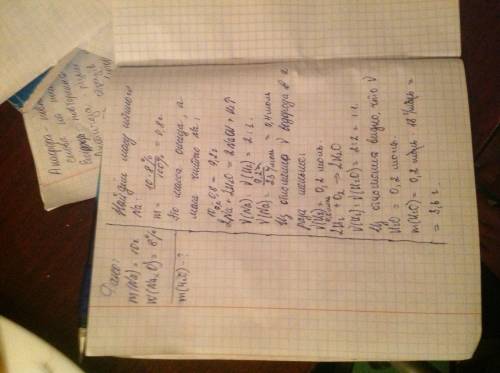 Дано:
m(Na) = 10г
W(Na₂O) = 8%
m(H₂O) - ?
Найдём массу оксида
Na:
m = 10·8% / 100% = 0,8г.
Это масса оксида, а
масса чистого Na:
10г - 0,8 = 9,2г
2Na + 2H₂O = 2NaOH + H₂↑
ν(Na) : ν(H₂) = 2:1.
ν(Na) = 9,2г / 23 г/моль = 0,4 моль
Из отношения ν водорода в 2
раза меньше.
ν(H₂) = 0,2 моль
2H₂ + O₂ → 2H₂O
ν(H₂) : ν(H₂O) = 2:2 = 1:1.
Из отношения видно, что ν
H₂O = 0,2 моль.
m(H₂O) = 0,2 моль · 18 г/моль =
= 3,6 г.